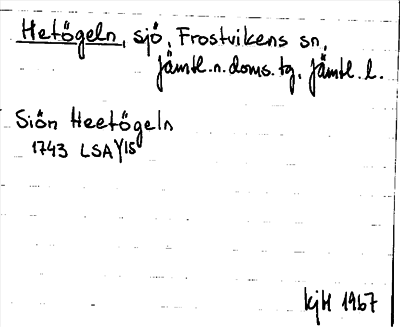 Hetögeln, sjö, Frostvikens sn,
Jämtl.n.doms.tg, Jämtl.l.
Siön Heetögeln
1743 LSA Y15
kjH 1967